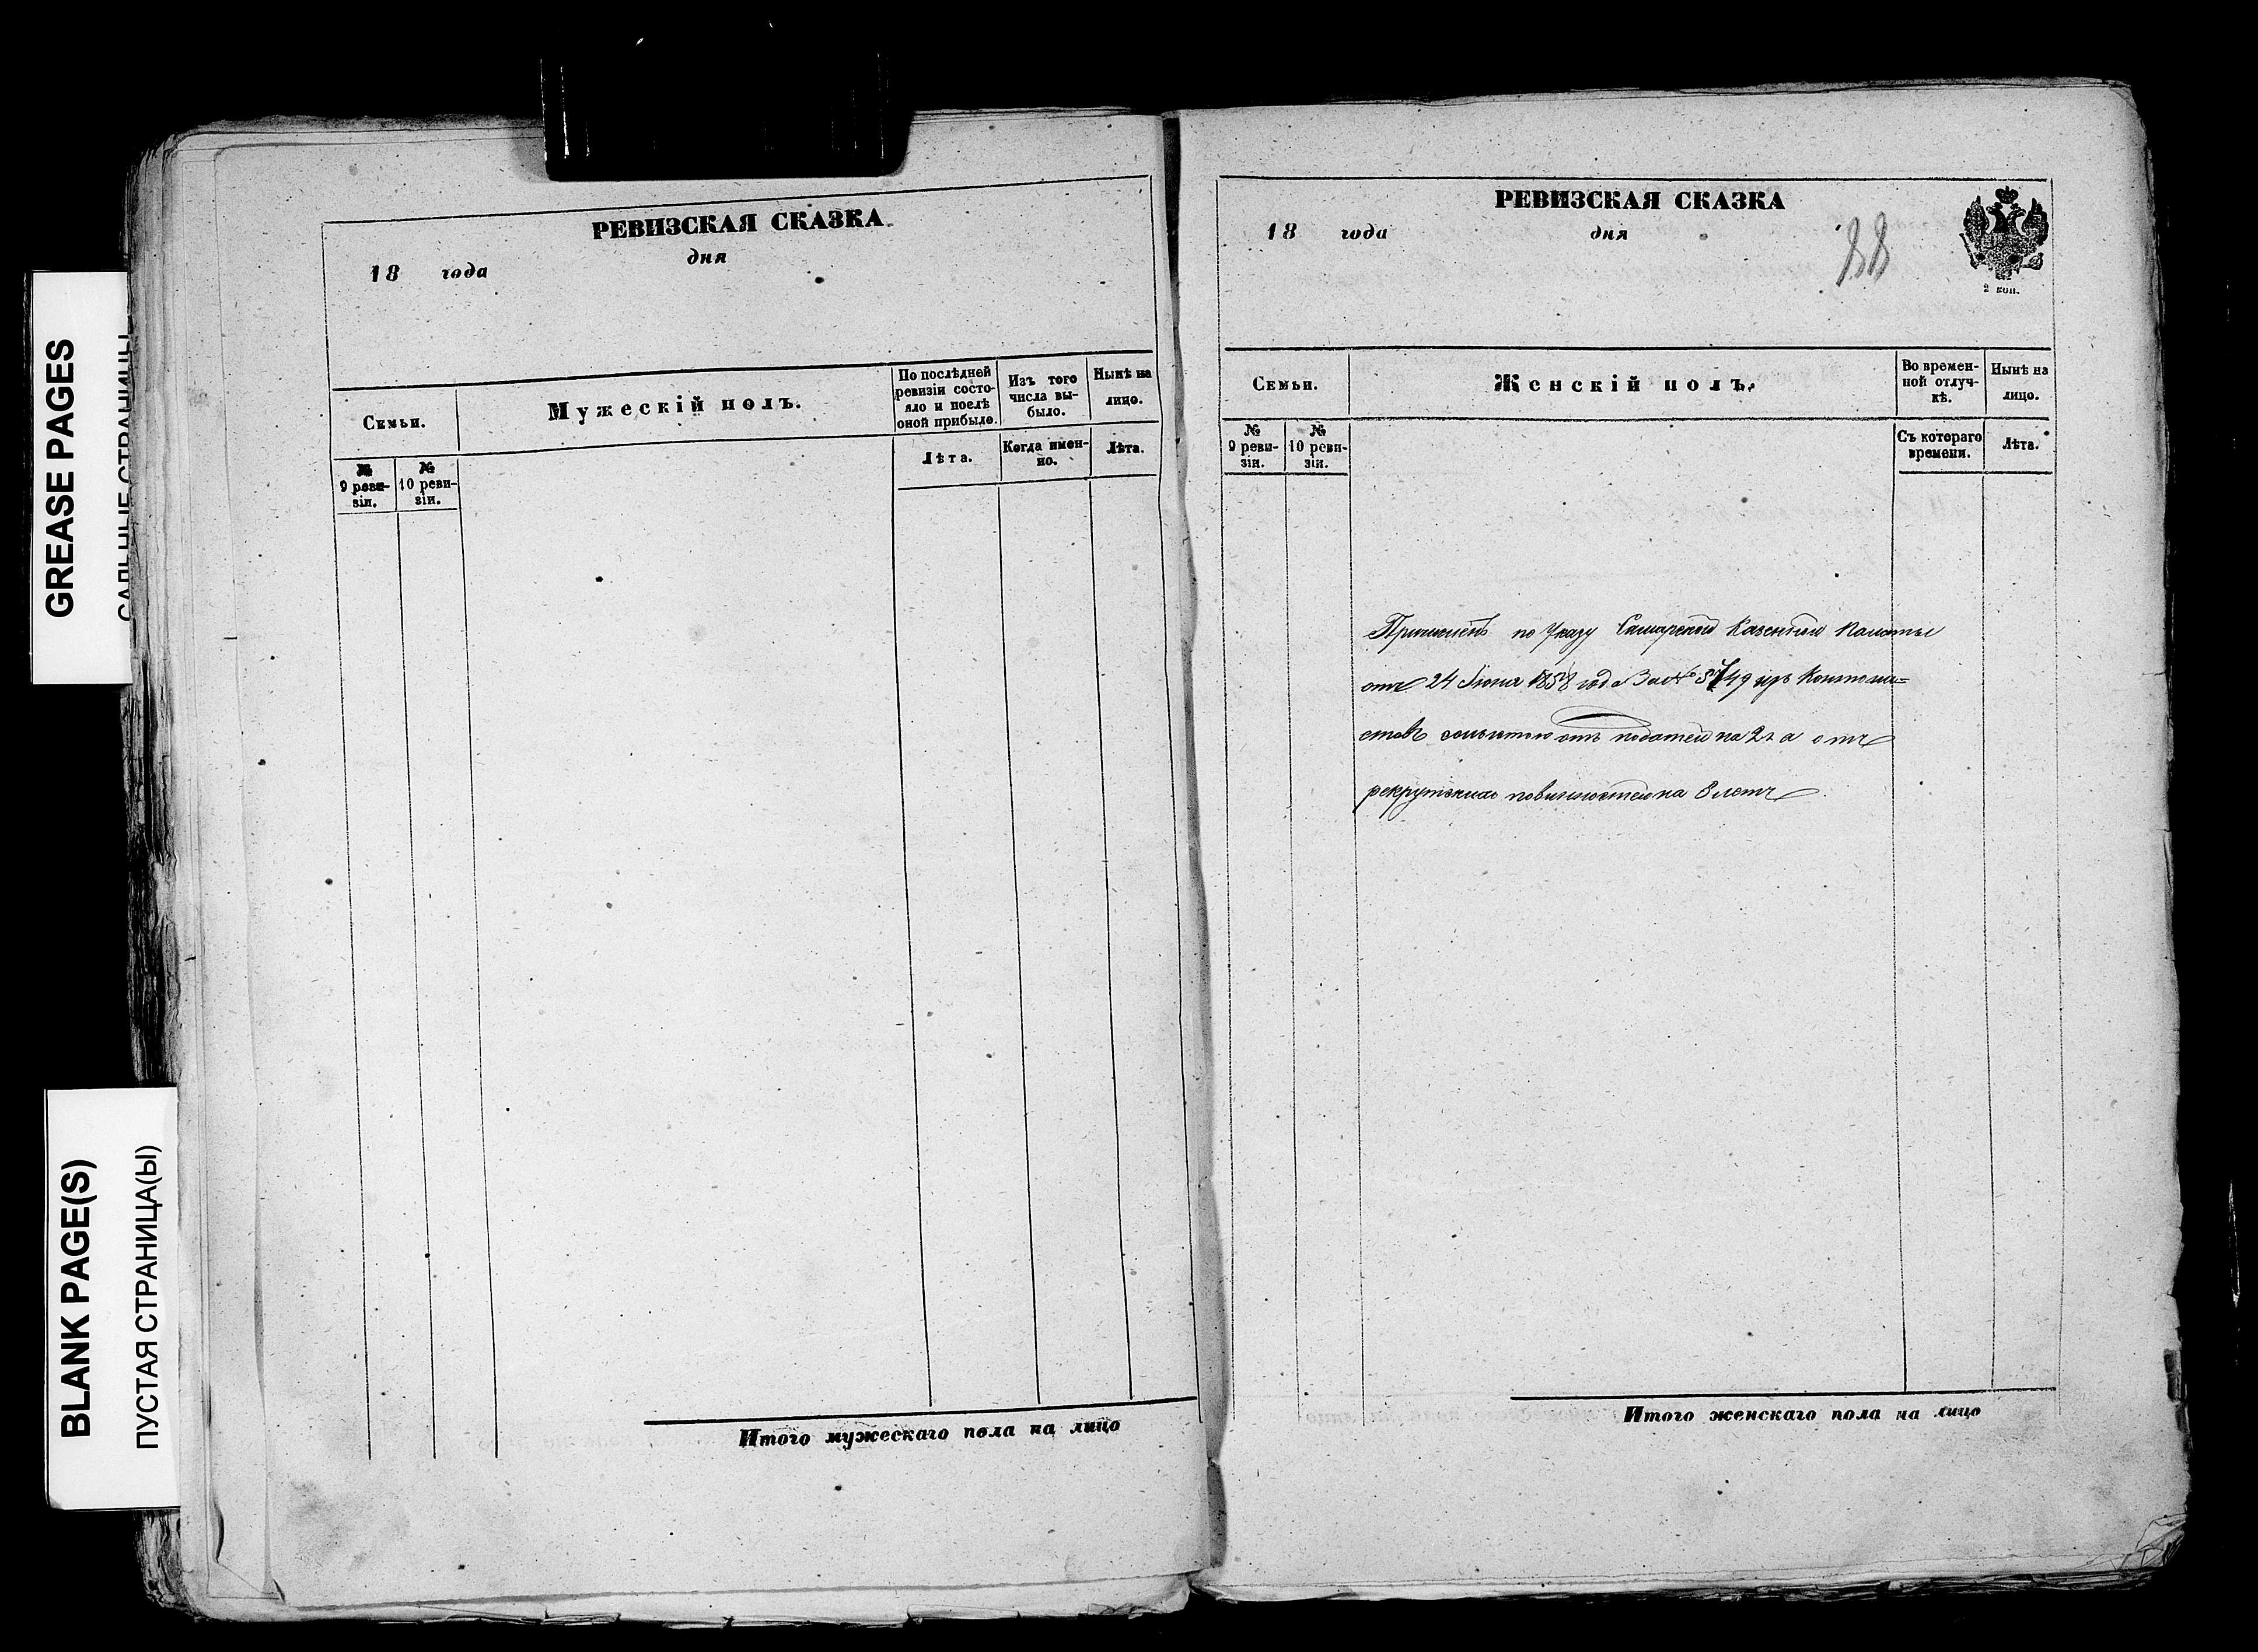 GREASE PAGES
BLANK PAGE(S)
ПУСТАЯ СТРАНИЦА(Ы)
РЕВИЗСКАЯ СКАЗКА
18 года дня
Семьи.
Мужескій полъ.
По послѣдней ревизіи состояло и послѣ оной прибыло.
Изъ того числа выбыло.
Нынѣ на лицо.
№ 9 ревизіи.
№ 10 ревизіи.
Лѣта.
Когда именно.
Лѣта.
Итого мужескаго пола на лицо
РЕВИЗСКАЯ СКАЗКА
18 года дня
88
2 коп.
Семьи.
Женскій полъ.
Во временной отлучкѣ.
Нынѣ на лицо.
№ 9 ревизіи.
№ 10 ревизіи.
Съ котораго времени.
Лѣта.
Причисленъ по Указу Самарской Казенной Палаты
отъ 24 Іюня 1858 года За № 5749 изъ Контони=
стовъ сольготою отъ податей на 2 г а отъ
рекрутских повинностей на 8 летъ
Итого женскаго пола на лицо